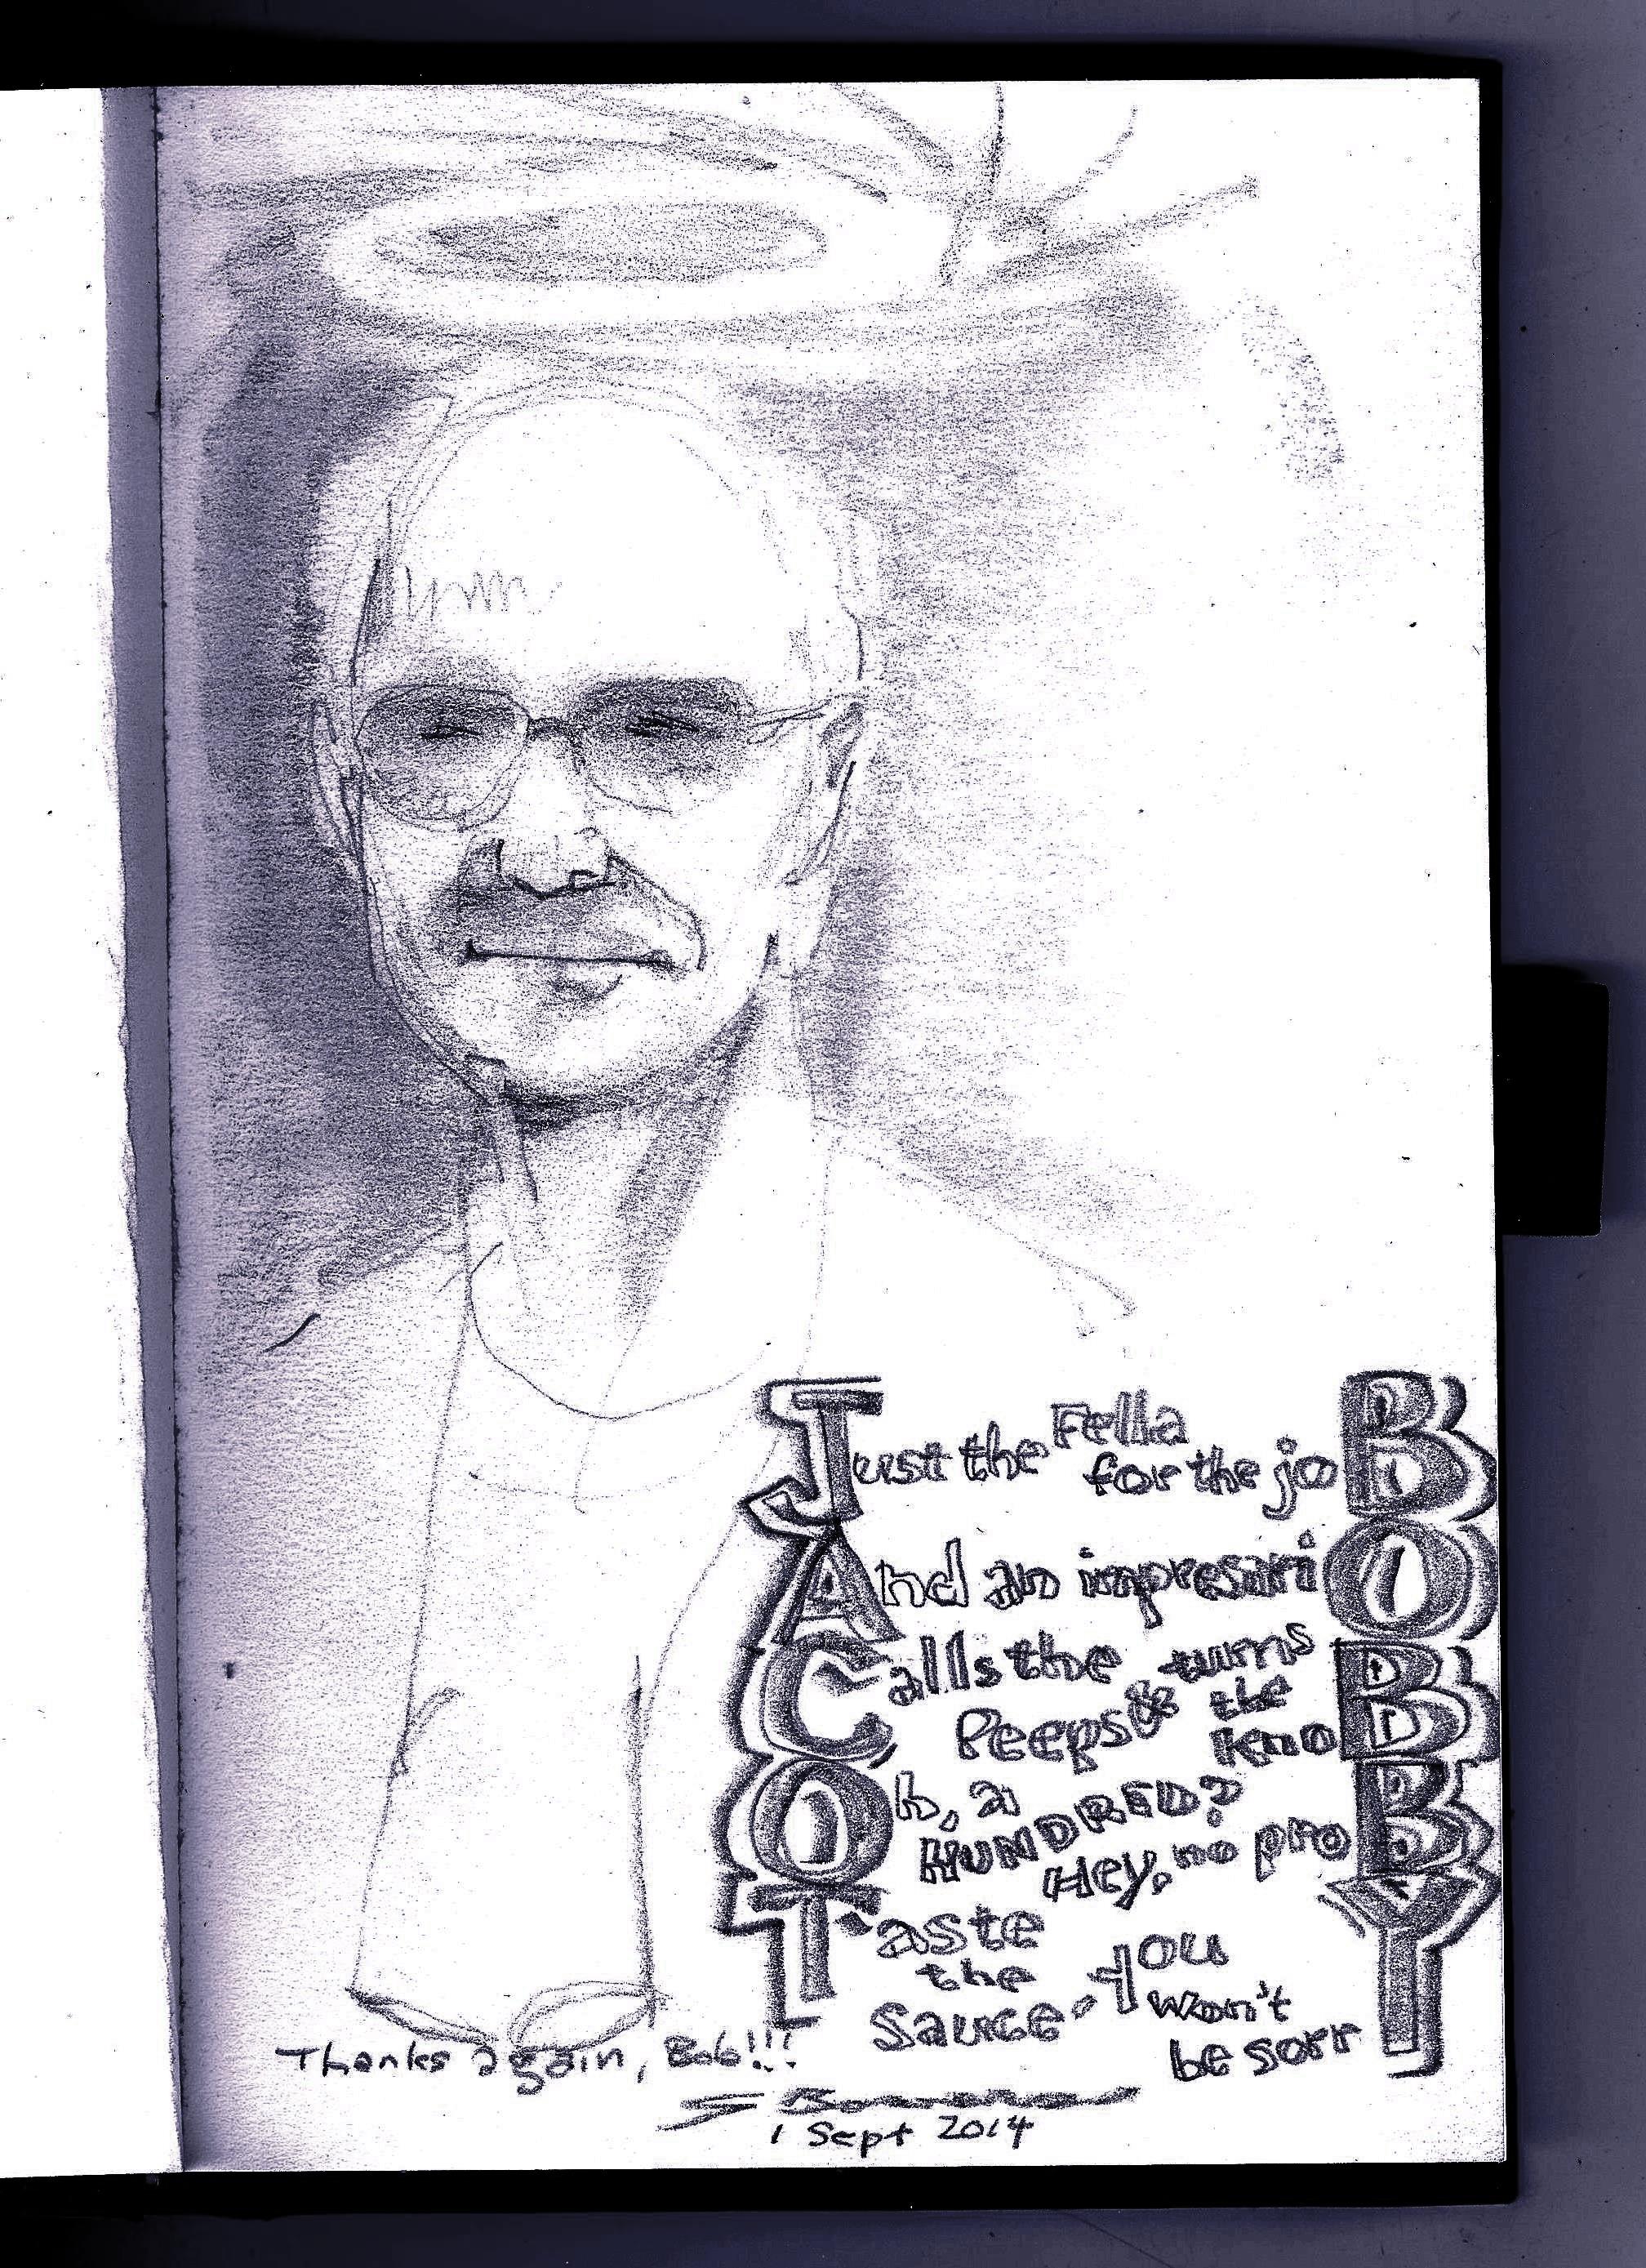 Just the Fella
for the joB
And an impresariO
Calls the
Peeps & turns
the
knoB
Oh, a
HUNDRED?
Hey, no proB
Taste
the
Sauce. You
won't
be sorrY
Thanks again, Bob!!!
1 Sept 2014